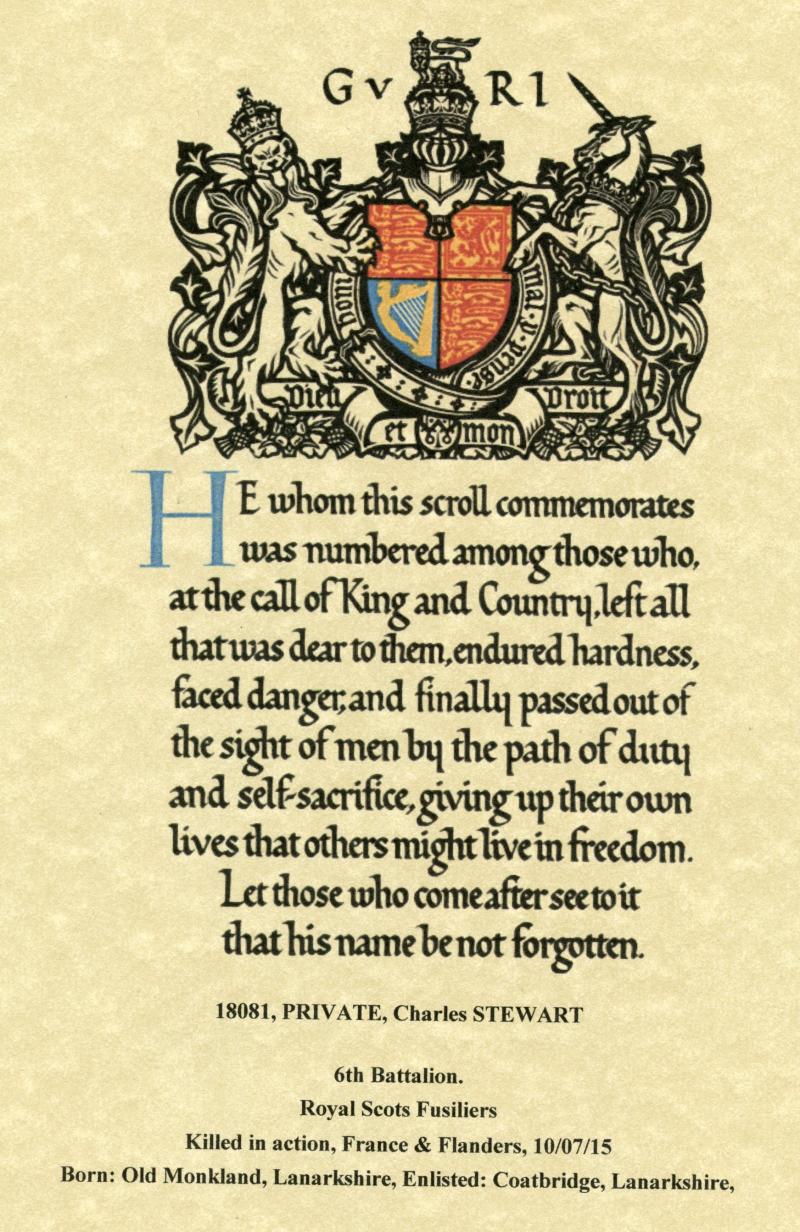 G V R I
Honi mal·y·pense
Dieu Droit
et mon
HE whom this scroll commemorates
was numbered among those who,
at the call of King and Country, left all
that was dear to them, endured hardness,
faced danger, and finally passed out of
the sight of men by the path of duty
and self-sacrifice, giving up their own
lives that others might live in freedom.
Let those who come after see to it
that his name be not forgotten.
18081, PRIVATE, Charles STEWART
6th Battalion.
Royal Scots Fusiliers
Killed in action, France & Flanders, 10/07/15
Born: Old Monkland, Lanarkshire, Enlisted: Coatbridge, Lanarkshire,